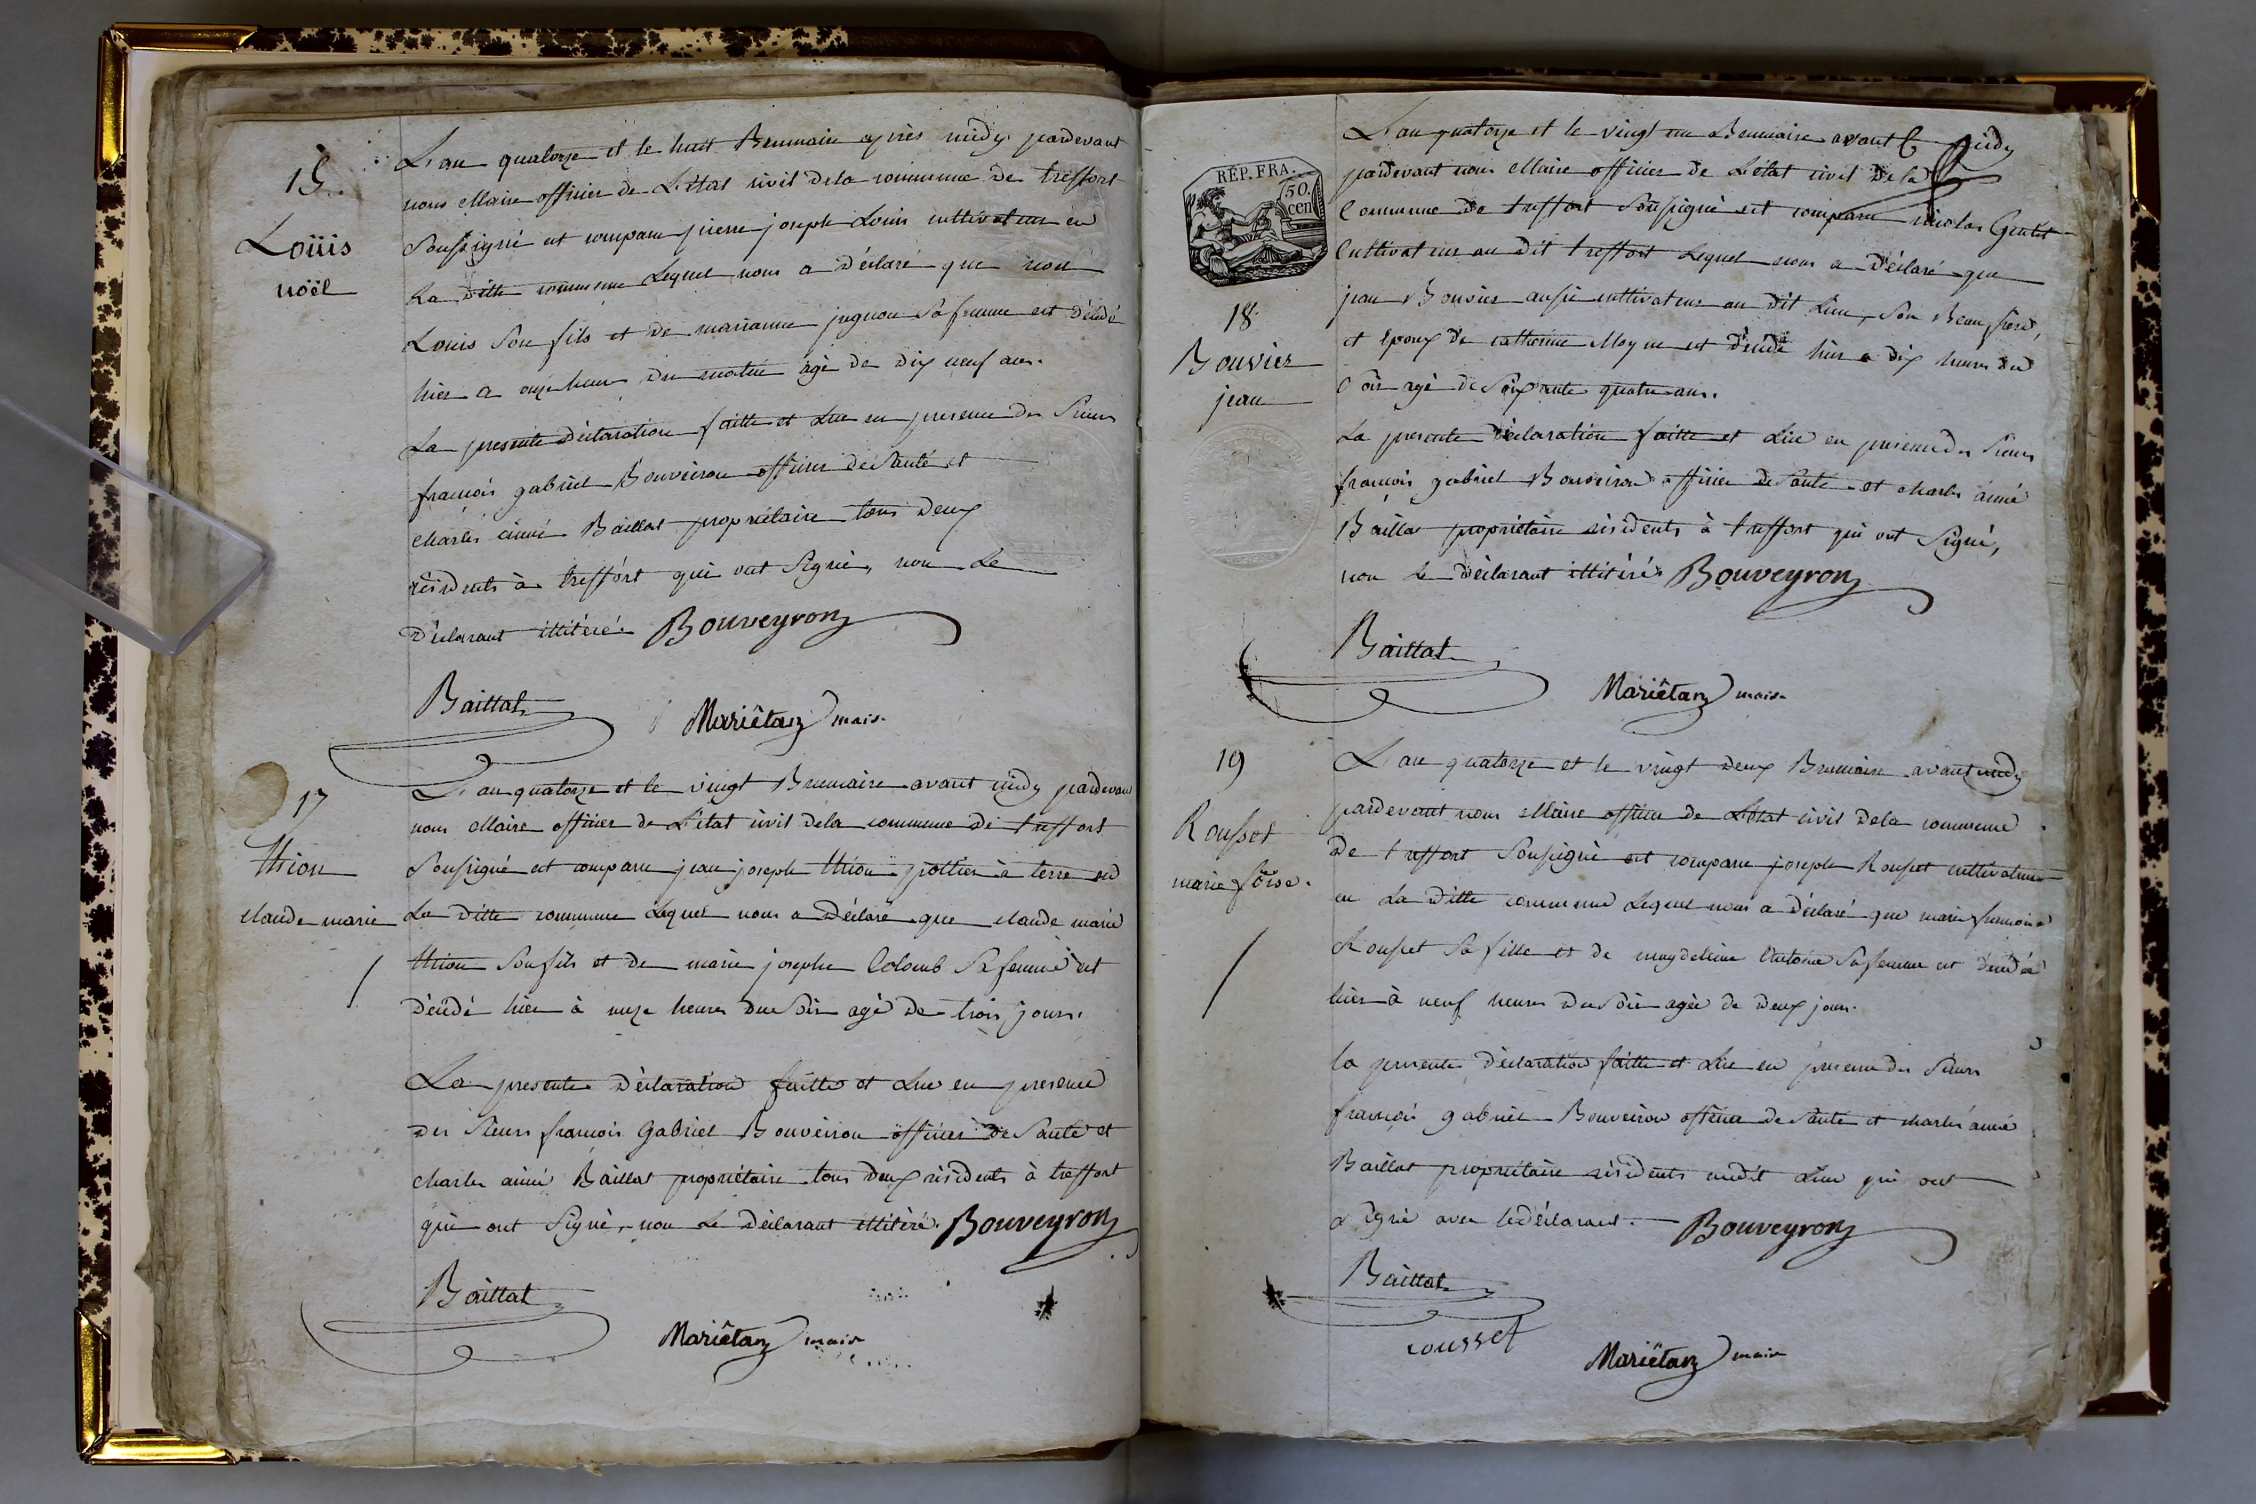 15
Loüis
noël
L'an quatorze et le huit Brumaire après midy pardevant
nous Maire officier de L'état civil dela commune de treffort
Soussigné est comparu pierre joseph Louis cultivateur en
La ditte commune Lequel nous a déclaré que noel
Louis Son fils et de marianne Sa femme est décédé
hier a onze heures du matin agé de dix neuf ans.
La presente déclaration faitte et Lue en presence des Sieurs
françois gabriel Bouveiron officier de Santé et
charles aimé Baillat propriétaire tous deux
résidents à treffort qui ont Signé, non Le
Déclarant illitéré. Bouveyron
Baillat
Mariétan maire
17
thion
claude marie
L'an quatorze et le vingt Brumaire avant midy pardevant
nous Maire officier de L'état civil dela commune de treffort
Soussigné est comparu jean joseph thion pottier à terre en
La ditte commune Lequel nous a déclaré que claude marie
thion Son fils et de marie josephe Colomb Sa femme est
décédé hier à onze heures du Soir agé de trois jours.
La presente déclaration faitte et Lue en presence
des Sieurs françois Gabriel Bouveiron officier de Santé et
charles aimé Baillat propriétaire tous deux résidents à treffort
qui ont Signé, non Le Déclarant illitéré. Bouveyron
Baillat
Mariétan maire
RÉP. FRA.
50.
cen
18
Bouvier
jean
L'an quatorze et le vingt un Brumaire avant midy
pardevant nous Maire officier de L'état civil De la
Commune de treffort Soussigné est comparu nicolas Gentil
Cultivateur au dit treffort Lequel nous a déclaré que
jean Bouvier aussi cultivateur au dit Lieu, Son Beaufrere,
et Epoux de catherine Moyne est décédé hier a dix heures du
Soir agé de Soixante quatre ans.
La presente déclaration faitte et Lüe en presence des Sieurs
françois gabriel Bouveiron officier de Santé et charles aimé
Baillat propriétaire résidents à treffort qui ont Signé,
non Le déclarant illitéré Bouveyron
Baillat
Mariétan maire
19
Rousset
marie foise.
L'an quatorze et le vingt deux Brumaire avant midy
pardevant nous Maire officier de L'état civil Dela commune
De treffort Soussigné est comparu joseph Rousset cultivateur
en La ditte commune Lequel nous a déclaré que marie francoise
Rousset Sa fille et de magdeleine Sa femme est décédée
hier à neuf heures du Soir agée de deux jours.
la presente déclaration faitte et Lüe en presence des Sieurs
françois gabriel Bouveiron officier de Santé et charles aimé
Baillat propriétaire résidents audit Lieu qui ont
Signé avec le déclarant. Bouveyron
Baillat
rousset
Mariétan maire